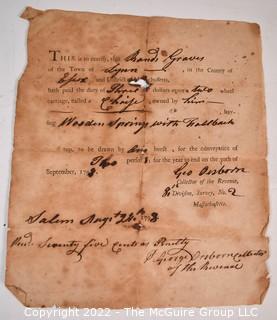 THIS is to certify, that Rand Graves
of the Town of Lynn, in the County of
Essex, and District of chusetts,
hath paid the duty of Three dollars upon a two
wheel carriage, called a Chaise, owned by him
Wooden Springs with Fallback
top, to be drawn by One horse, for the conveyance of
Two persons, for the year to end on the 30th of
September, 179
Geo Osborn
Collector of the Revenue,
Division, Survey, No. 2
Massachusetts.
Salem Augt 24th
Recd Seventy five Cents as Penalty
George Osborn Collector
of the Revenue
Copyright 2022 - The McGuire Group LLC